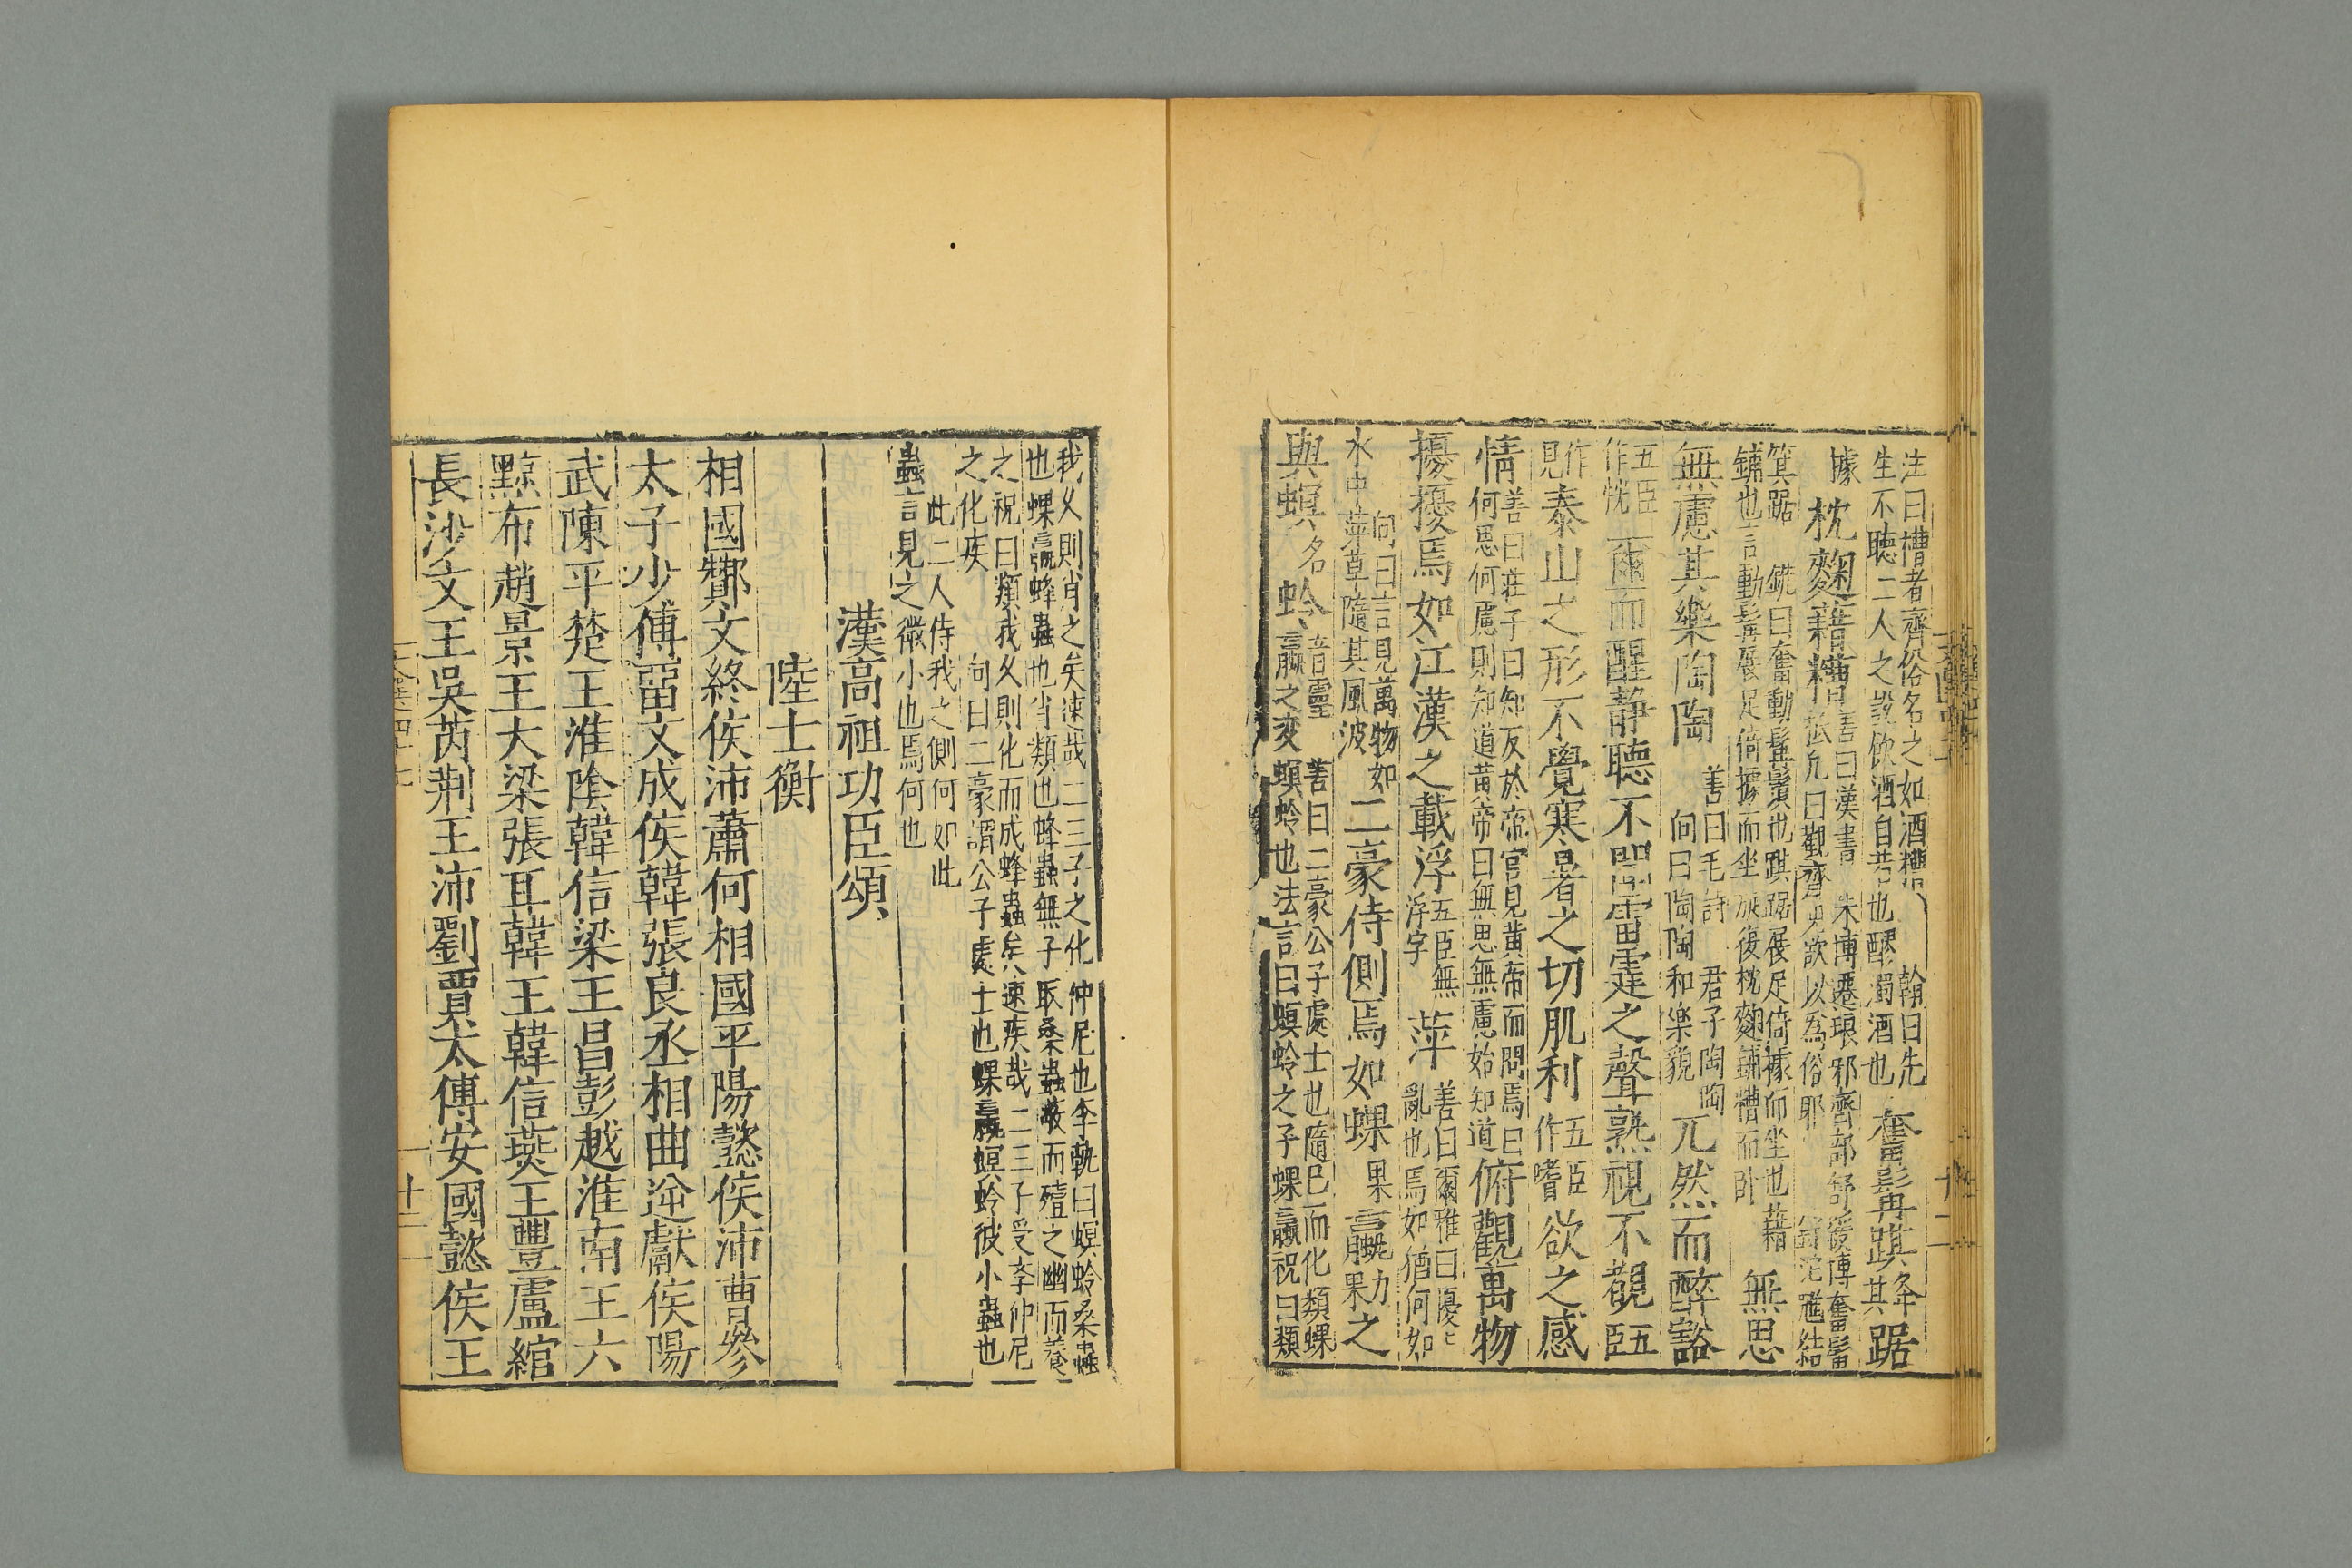 注曰槽者齊俗名之如酒槽翰曰先生不聽二人之說飲酒自若也醪濁酒也奮髯踑踞
據枕麴藉糟善曰漢書朱博遷琅邪齊部舒緩博奮髯抵几曰觀齊兒欲以為俗耶尉陀魋結
箕踞銑曰奮動髭鬚也踑踞展足倚據而坐也藉鋪也言動髯展足倚據而坐旋復枕麴鋪糟而卧無思
無慮其樂陶陶善曰毛詩君子陶陶向曰陶陶和樂貌兀然而醉豁
五臣作恍爾而醒静聽不聞雷霆之聲熟視不覩五臣
作見泰山之形不覺寒暑之切肌利五臣作嗜欲之感
情善曰莊子曰知反於帝宫見黄帝而問焉曰何思何慮則知道黄帝曰無思無慮始知道俯觀萬物
擾擾焉如江漢之載浮五臣無浮字萍善曰爾雅曰擾〻亂也焉如猶何如
向曰言見萬物如水中萍草隨其風波二豪侍側焉如蜾果蠃力果之
與螟名蛉音靈蠃之変善曰二豪公子處士也隨已而化類蜾螟蛉也法言曰螟蛉之子蜾蠃祝曰類
我乆則肖之矣速哉二三子之化仲尼也李軌曰螟蛉桑蟲也蜾蠃蜂蟲也肖類也蜂蟲無子取桑蟲蔽而殪之幽而養
之祝曰類我乆則化而成蜂蟲矣速疾哉二三子受孝仲尼之化疾向曰二豪謂公子處士也蜾蠃螟蛉彼小蟲也
此二人侍我之側何如此蟲言見之微小也焉何也
漢高祖功臣頌
陸士衡
相國酇文終侯沛蕭何相國平陽懿侯沛曹參
太子少傅畱文成侯韓張良丞相曲逆獻侯陽
武陳平楚王淮陰韓信梁王昌彭越淮南王六
黥布趙景王大梁張耳韓王韓信燕王豐盧綰
長沙文王吳芮荆王沛劉賈太傅安國懿侯王